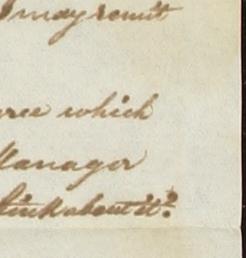 I may remit
which
Manager
think about it?